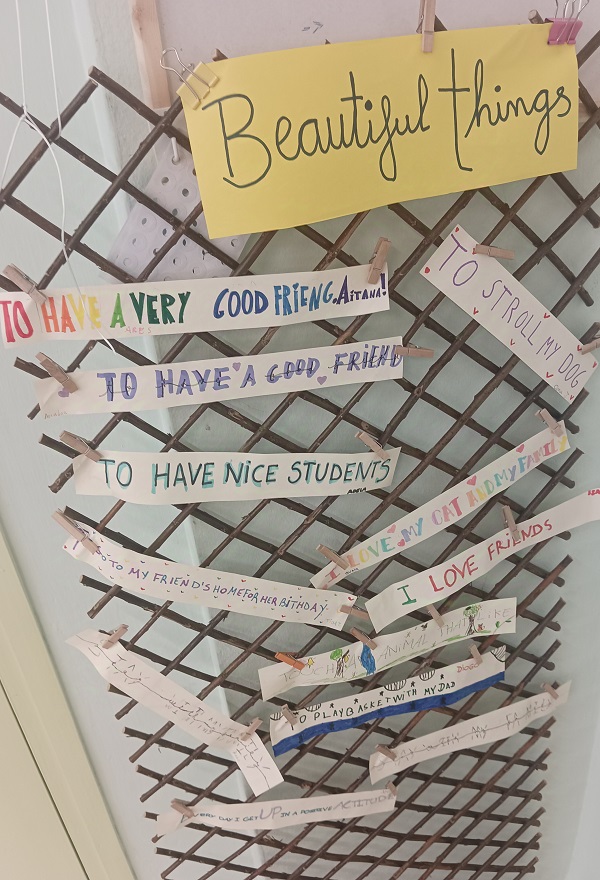 Beautiful things
TO HAVE A VERY GOOD FRIENG. AITANA!
TO STROLL MY DOG
TO HAVE A GOOD FRIEND
TO HAVE NICE STUDENTS
I LOVE MY CAT AND MY FAMILY
GO TO MY FRIEND'S HOME FOR HER BITHDAY
I LOVE FRIENDS
ANIMAL THAT I LIKE
TO PLAY BASKET WITH MY DAD
DIEGO
MY FAMILY
EVERY DAY I GET UP IN A POSITIVE ACTITUDE